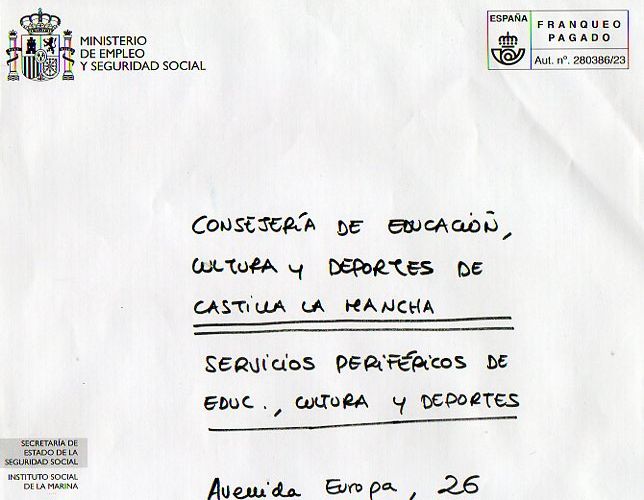 MINISTERIO
DE EMPLEO
Y SEGURIDAD SOCIAL
ESPAÑA
FRANQUEO
PAGADO
Aut. nº. 280386/23
CONSEJERÍA DE EDUCACIÓN,
CULTURA Y DEPORTES DE
CASTILLA LA MANCHA
SERVICIOS PERIFÉRICOS DE
EDUC., CULTURA Y DEPORTES
SECRETARÍA DE
ESTADO DE LA
SEGURIDAD SOCIAL
INSTITUTO SOCIAL
DE LA MARINA
Avenida Europa, 26